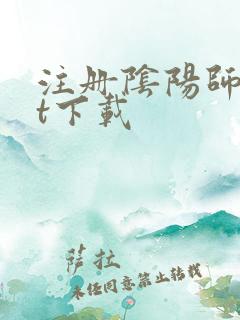 注册陰陽師
t下載
薩拉
未径同意禁止转载